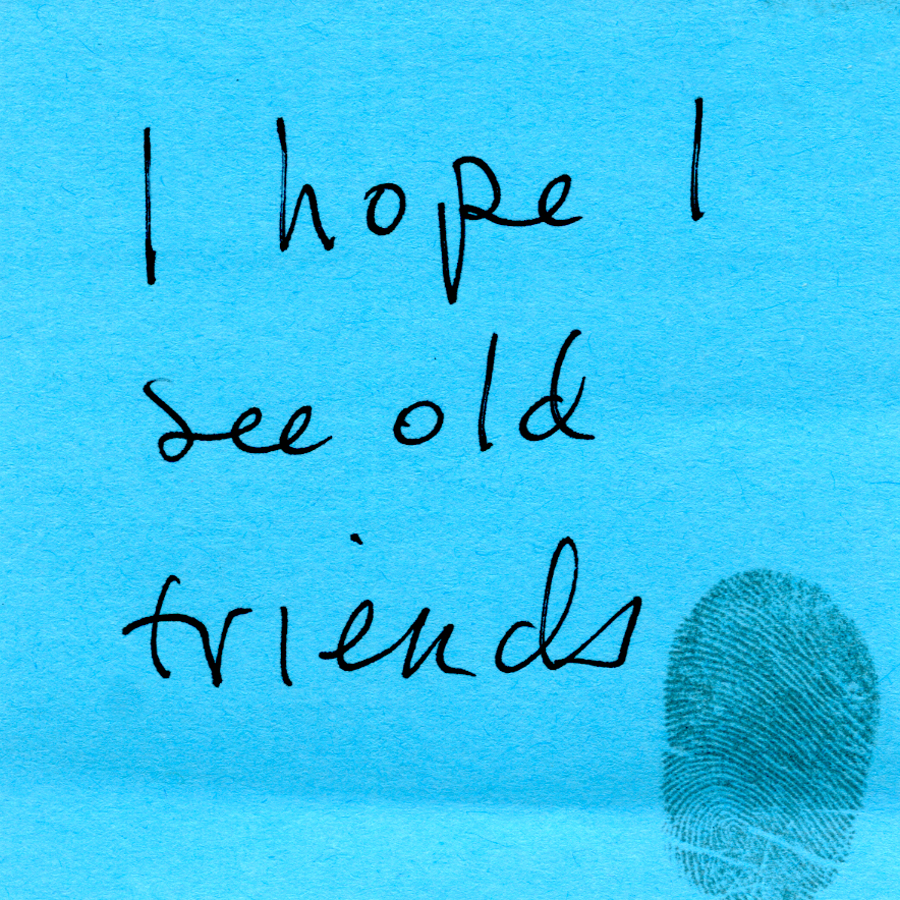 I hope I
see old
friends